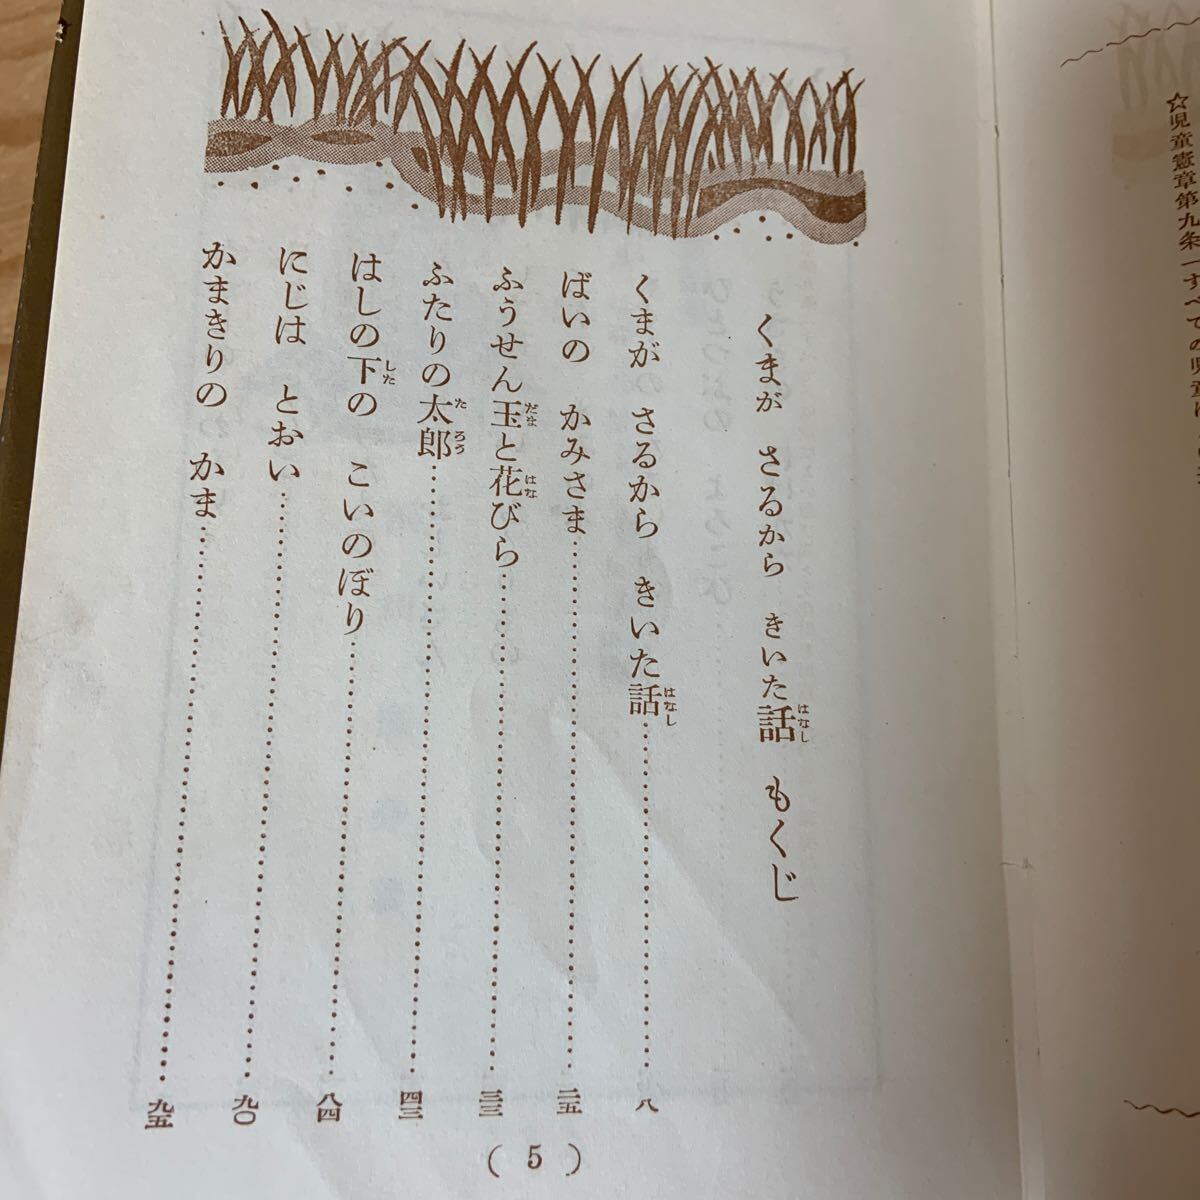 ☆児童憲章第九条「すべての児童は
くまが さるから きいた話 もくじ
はなし
くまが さるから きいた話……八
はなし
ばいの かみさま……二五
ふうせん玉と花びら……三三
だま はな
ふたりの太郎……四三
たろう
はしの下の こいのぼり……八四
した
にじは とおい……九〇
かまきりの かま……九五
(5)